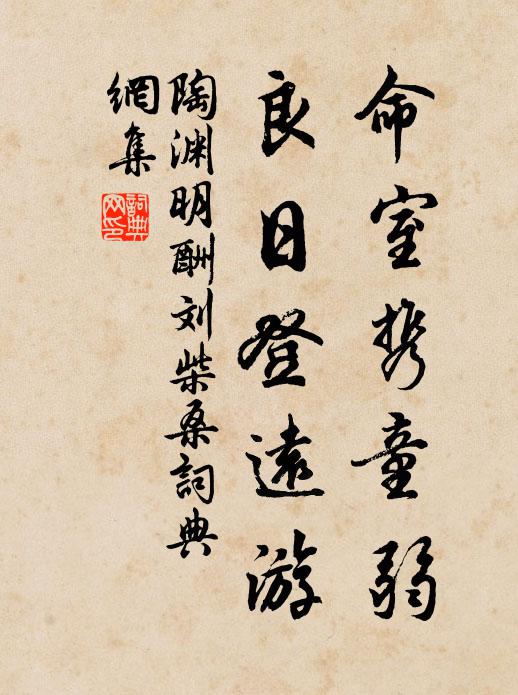 命室携童弱
良日登遠游
陶渊明酬刘柴桑詞典
網集
詞典
网印